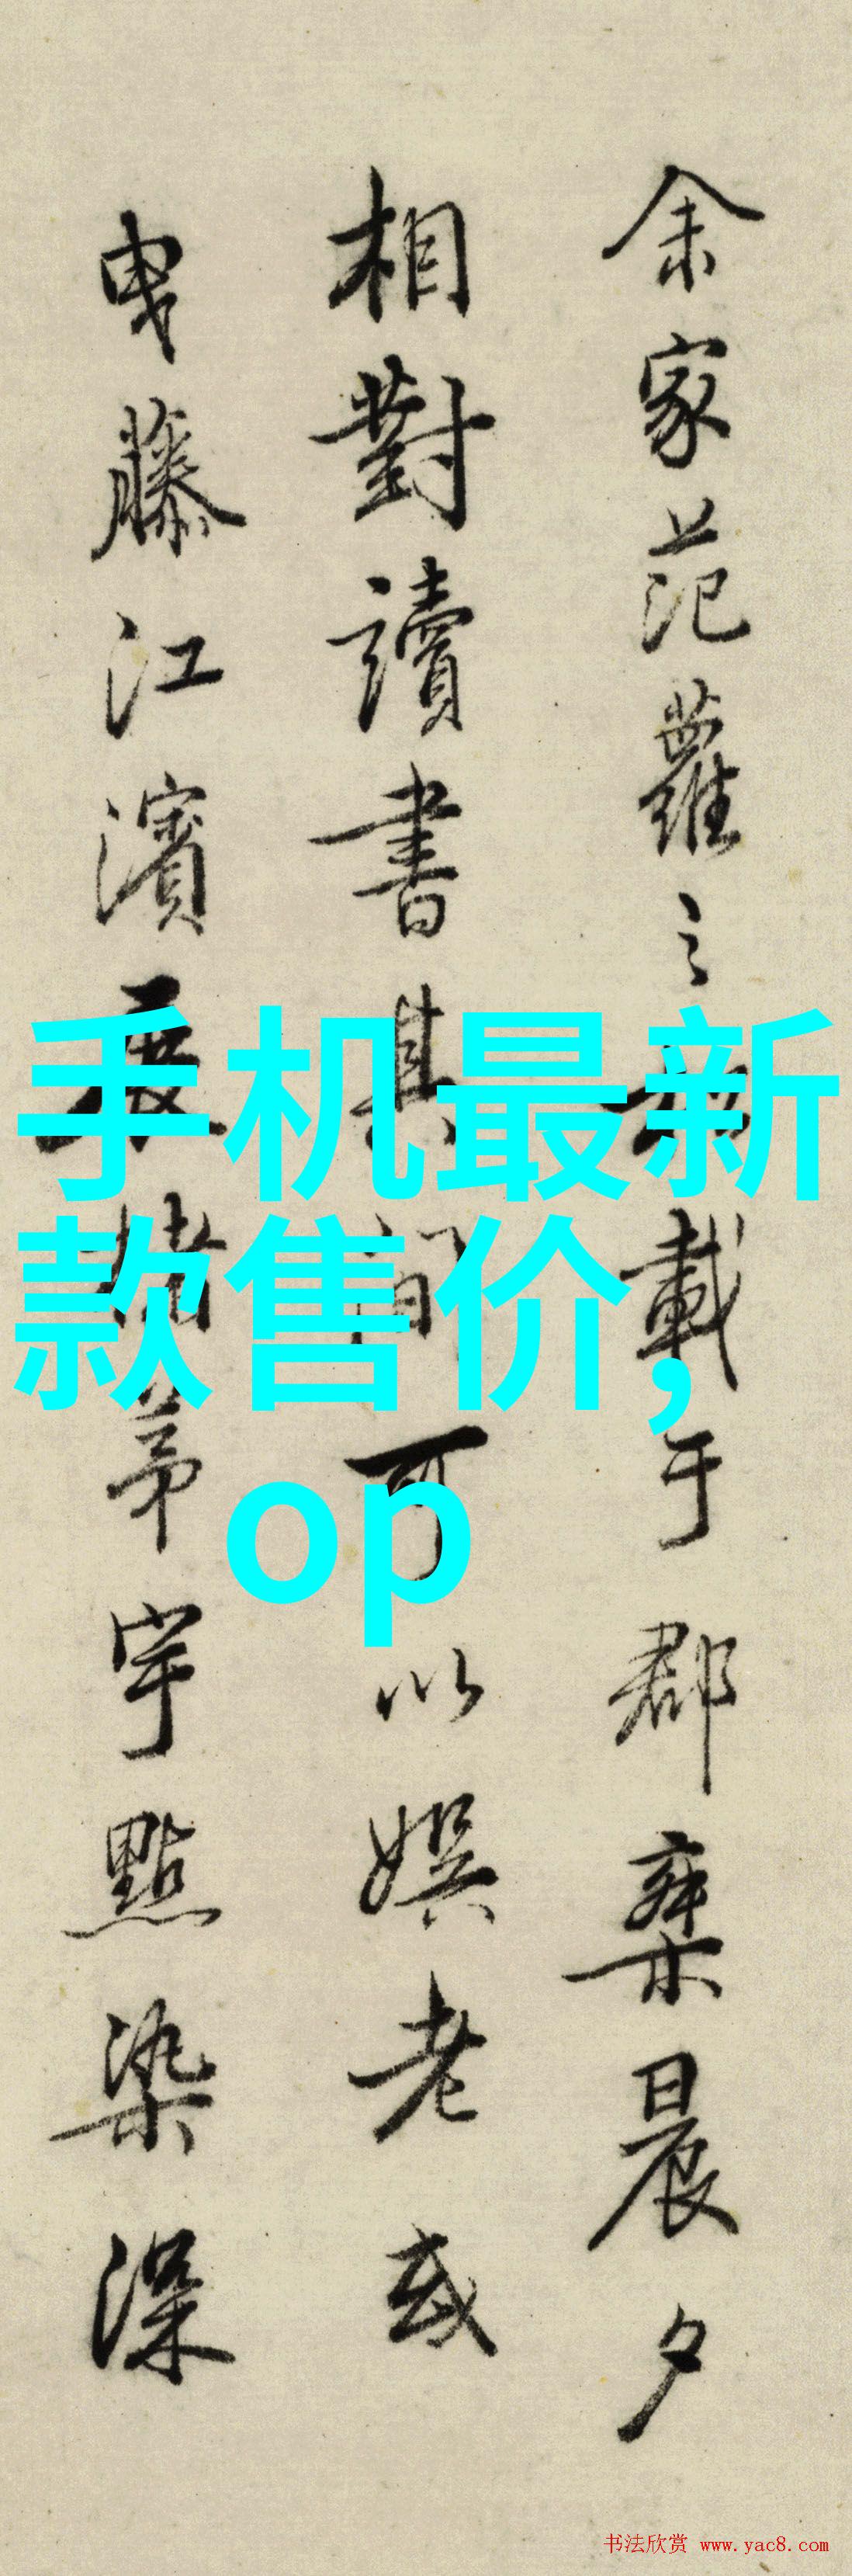 余家范蘿之載于郡乘晨夕
相對讀書其間可以娛老或
曳藤江濱展茅宇點染深
手机最新
款售价,
op
书法欣赏 www.yac8.com